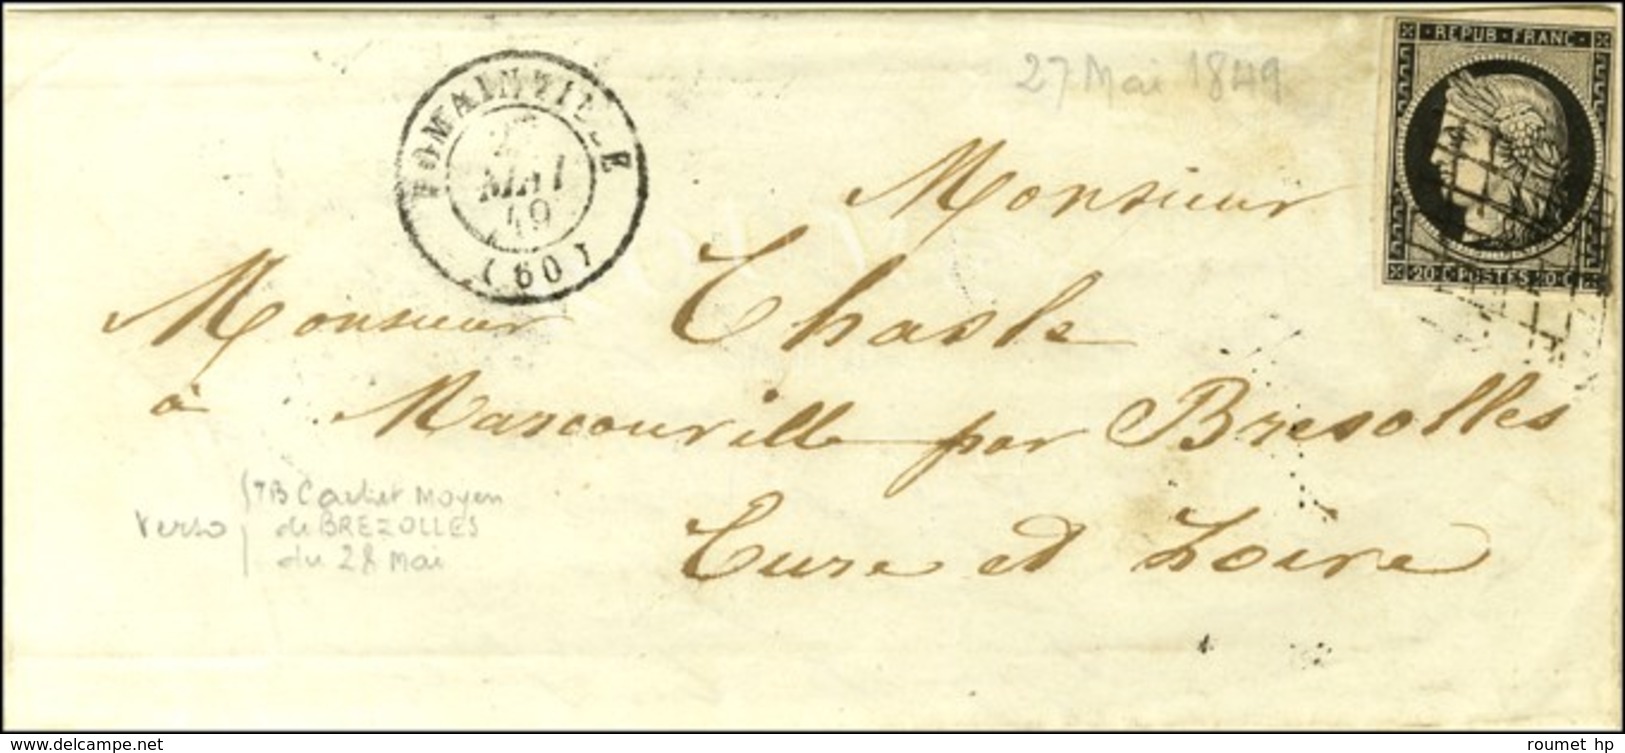 REPUB·FRANC
27 Mai 1849
ROMAINVILLE
27
MAI
49
(60)
Monsieur
20·C·POSTES·20·C
Monsieur Chasle
à Marcouville par Bresolles
Eure et Loire
Verso
TB Cachet Moyen
de BREZOLLES
du 28 Mai
www.delcampe.net
roumet hp